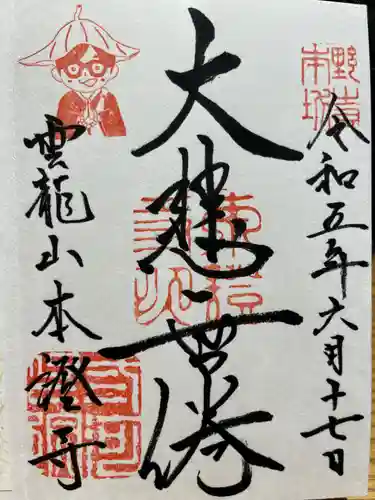 野寺
本坊
令和五年六月十七日
大悲無倦
雲龍山本證寺